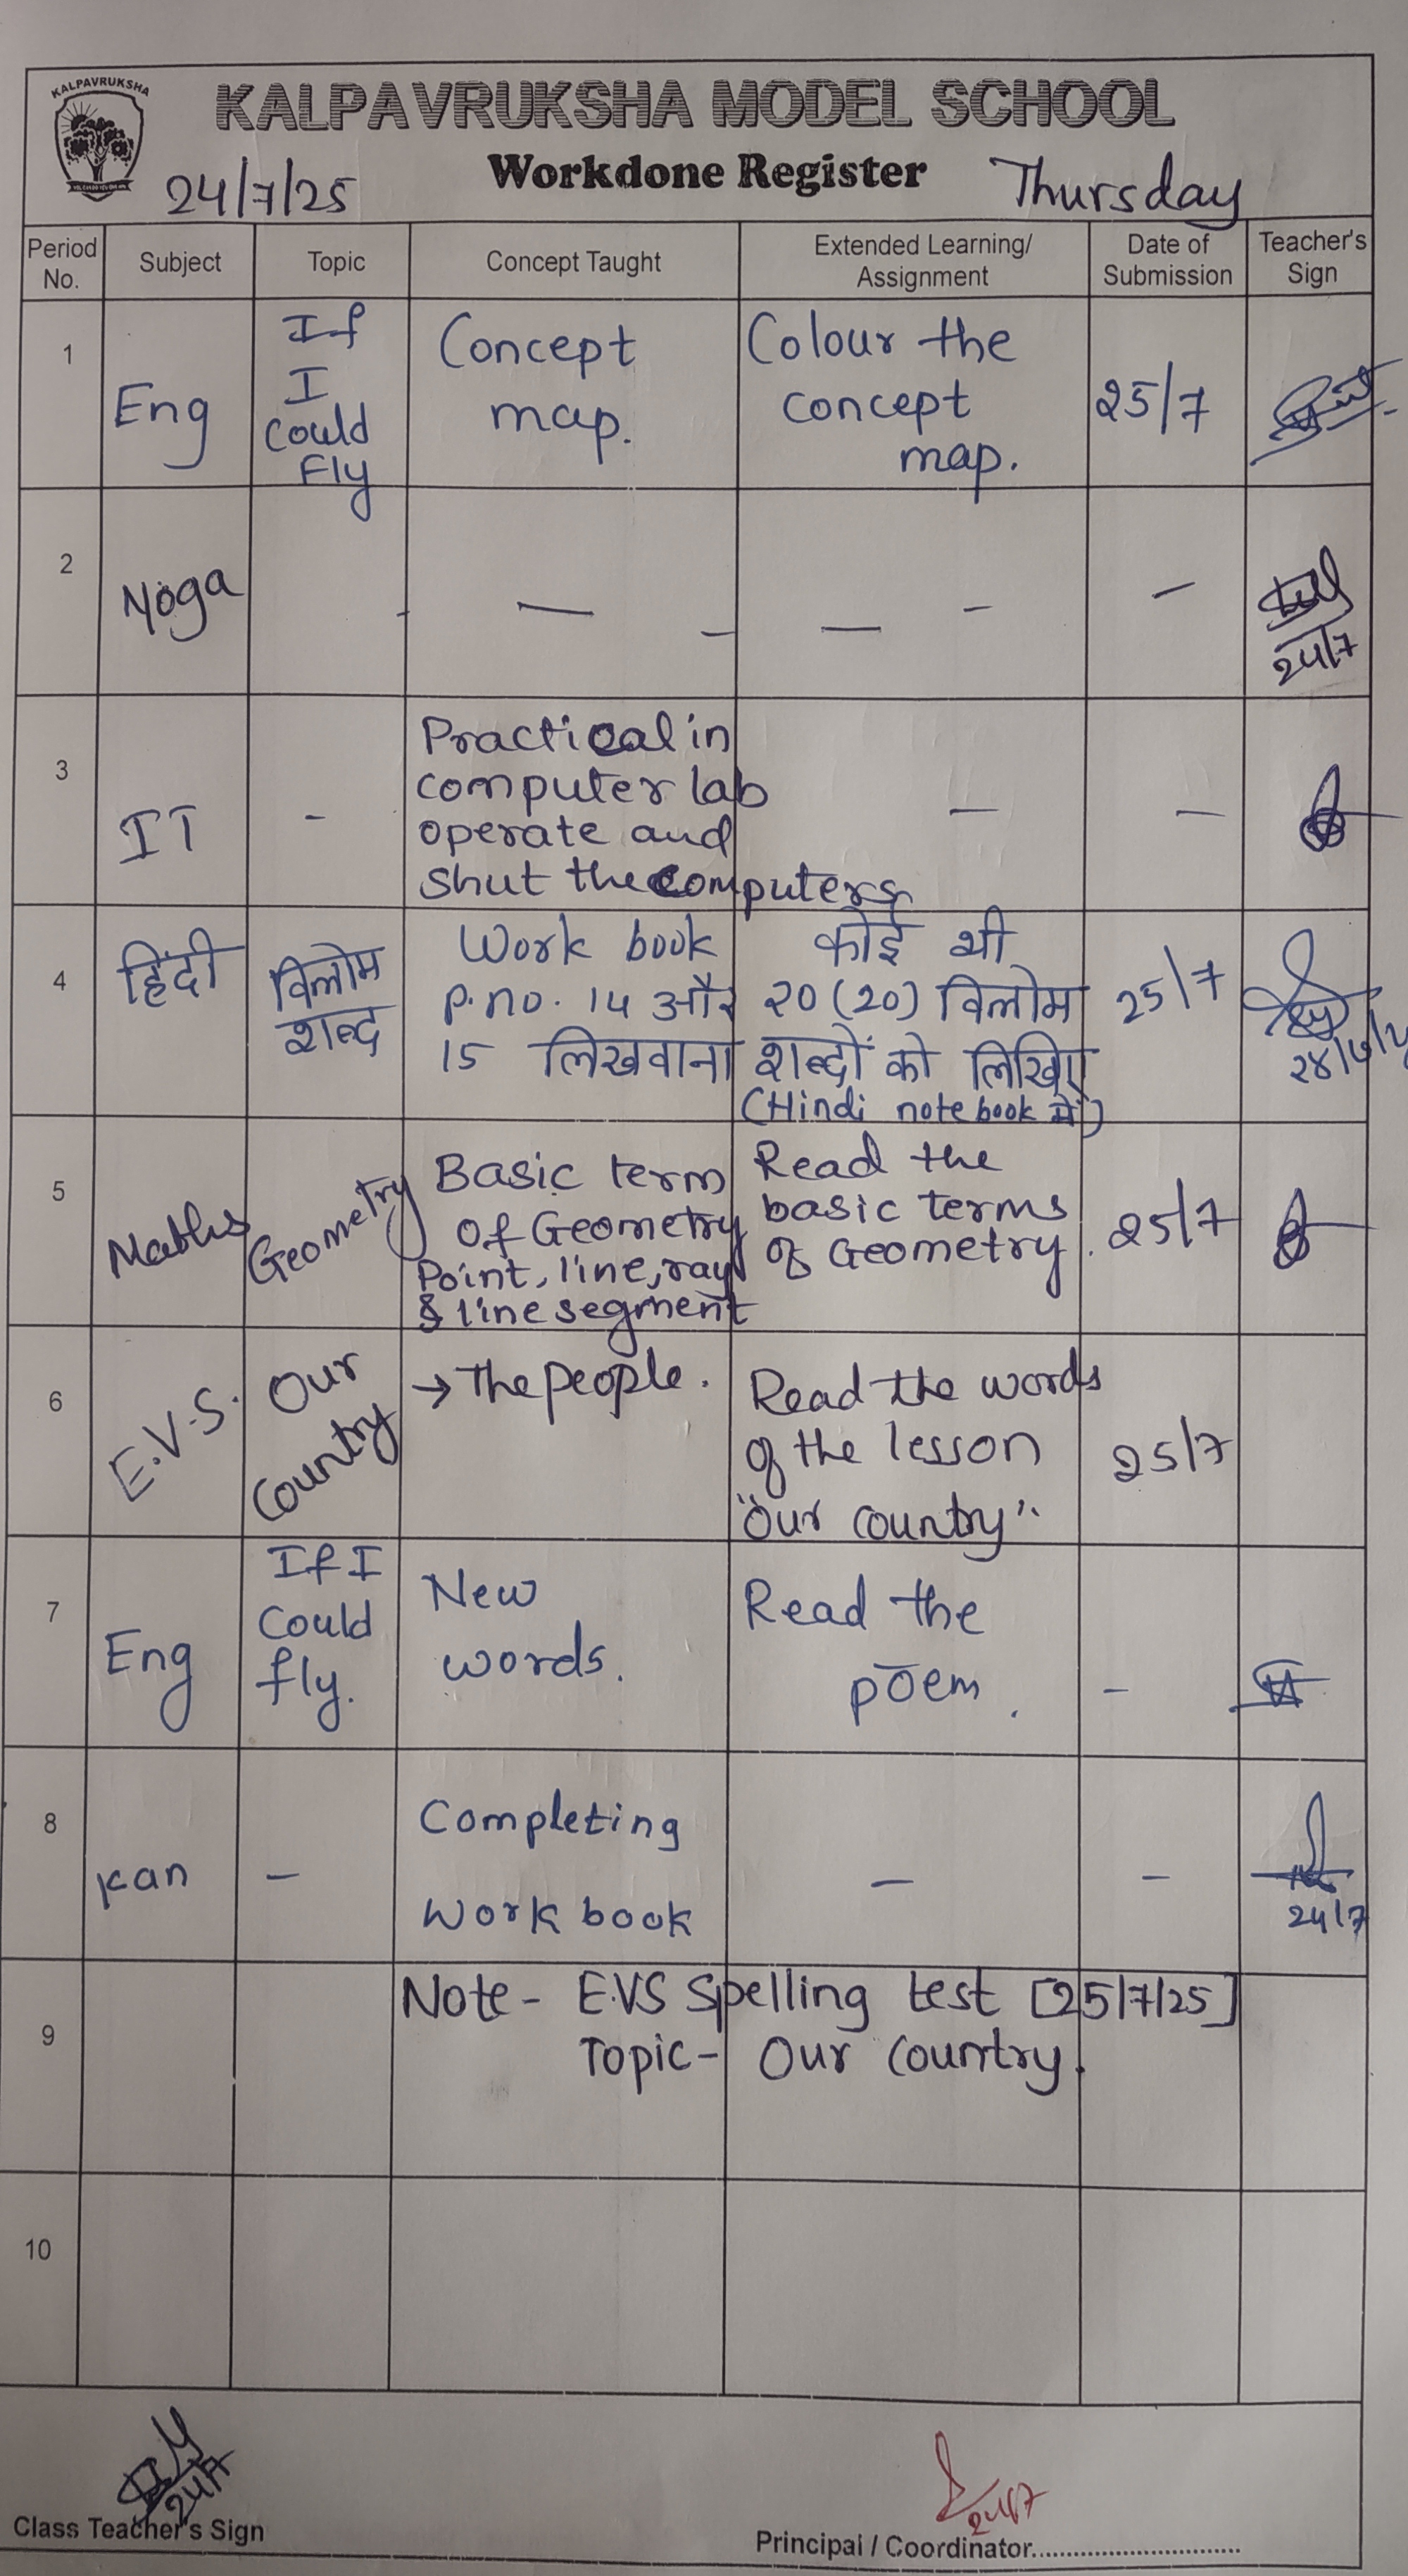 KALPAVRUKSHA
KALPAVRUKSHA MODEL SCHOOL
Workdone Register
24/7/25
Thursday
Period No.
Subject
Topic
Concept Taught
Extended Learning/ Assignment
Date of Submission
Teacher's Sign
1
Eng
If
I
Could
Fly
Concept
map.
Colour the
concept
map.
25/7
2
Yoga
—
—
—
24/7
3
IT
-
Practical in
computer lab
operate and
shut the computers
—
—
4
हिंदी
विलोम
शब्द
Work book
P.no. 14 और
15 लिखवाना
कोई भी
२० (20) विलोम
शब्दों को लिखिए
(Hindi note book में)
25/7
5
Maths
Geometry
Basic term
of Geometry
Point, line, ray
& line segment
Read the
basic terms
of Geometry.
25/7
6
E.V.S.
Our
Country
→ The people.
Read the words
of the lesson
"Our country".
25/7
7
Eng
If I
Could
fly.
New
words.
Read the
poem.
-
8
Kan
-
Completing
Work book
—
-
24/7
9
Note - EVS Spelling test [25/7/25]
Topic - Our Country.
10
24/7
Class Teacher's Sign
24/7
Principal / Coordinator..............................